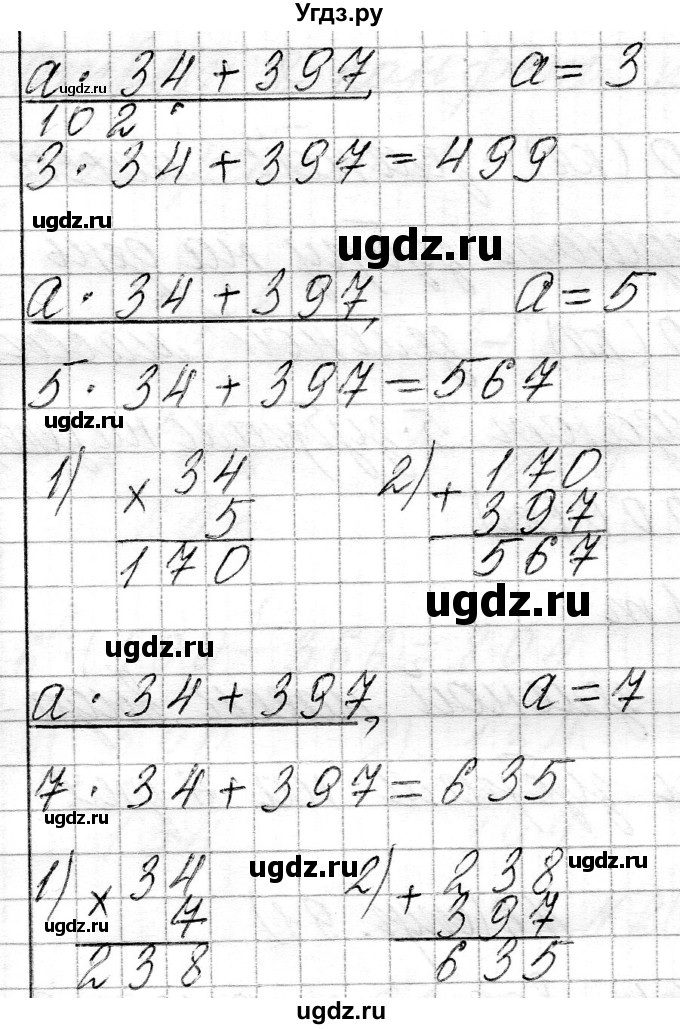 Угдз.ру
a · 34 + 397, a = 3
ugdz.ru
102
3 · 34 + 397 = 499
ugdz.ru
ugdz.ru
a · 34 + 397, a = 5
5 · 34 + 397 = 567
ugdz.ru
1) × 34 2) + 170
5 397
170 567
ugdz.ru
ugdz.ru
a · 34 + 397, a = 7
7 · 34 + 397 = 635
ugdz.ru
ugdz.ru
ugdz.ru
1) × 34 2) + 238
7 397
ugdz.ru
238 635
ugdz.ru